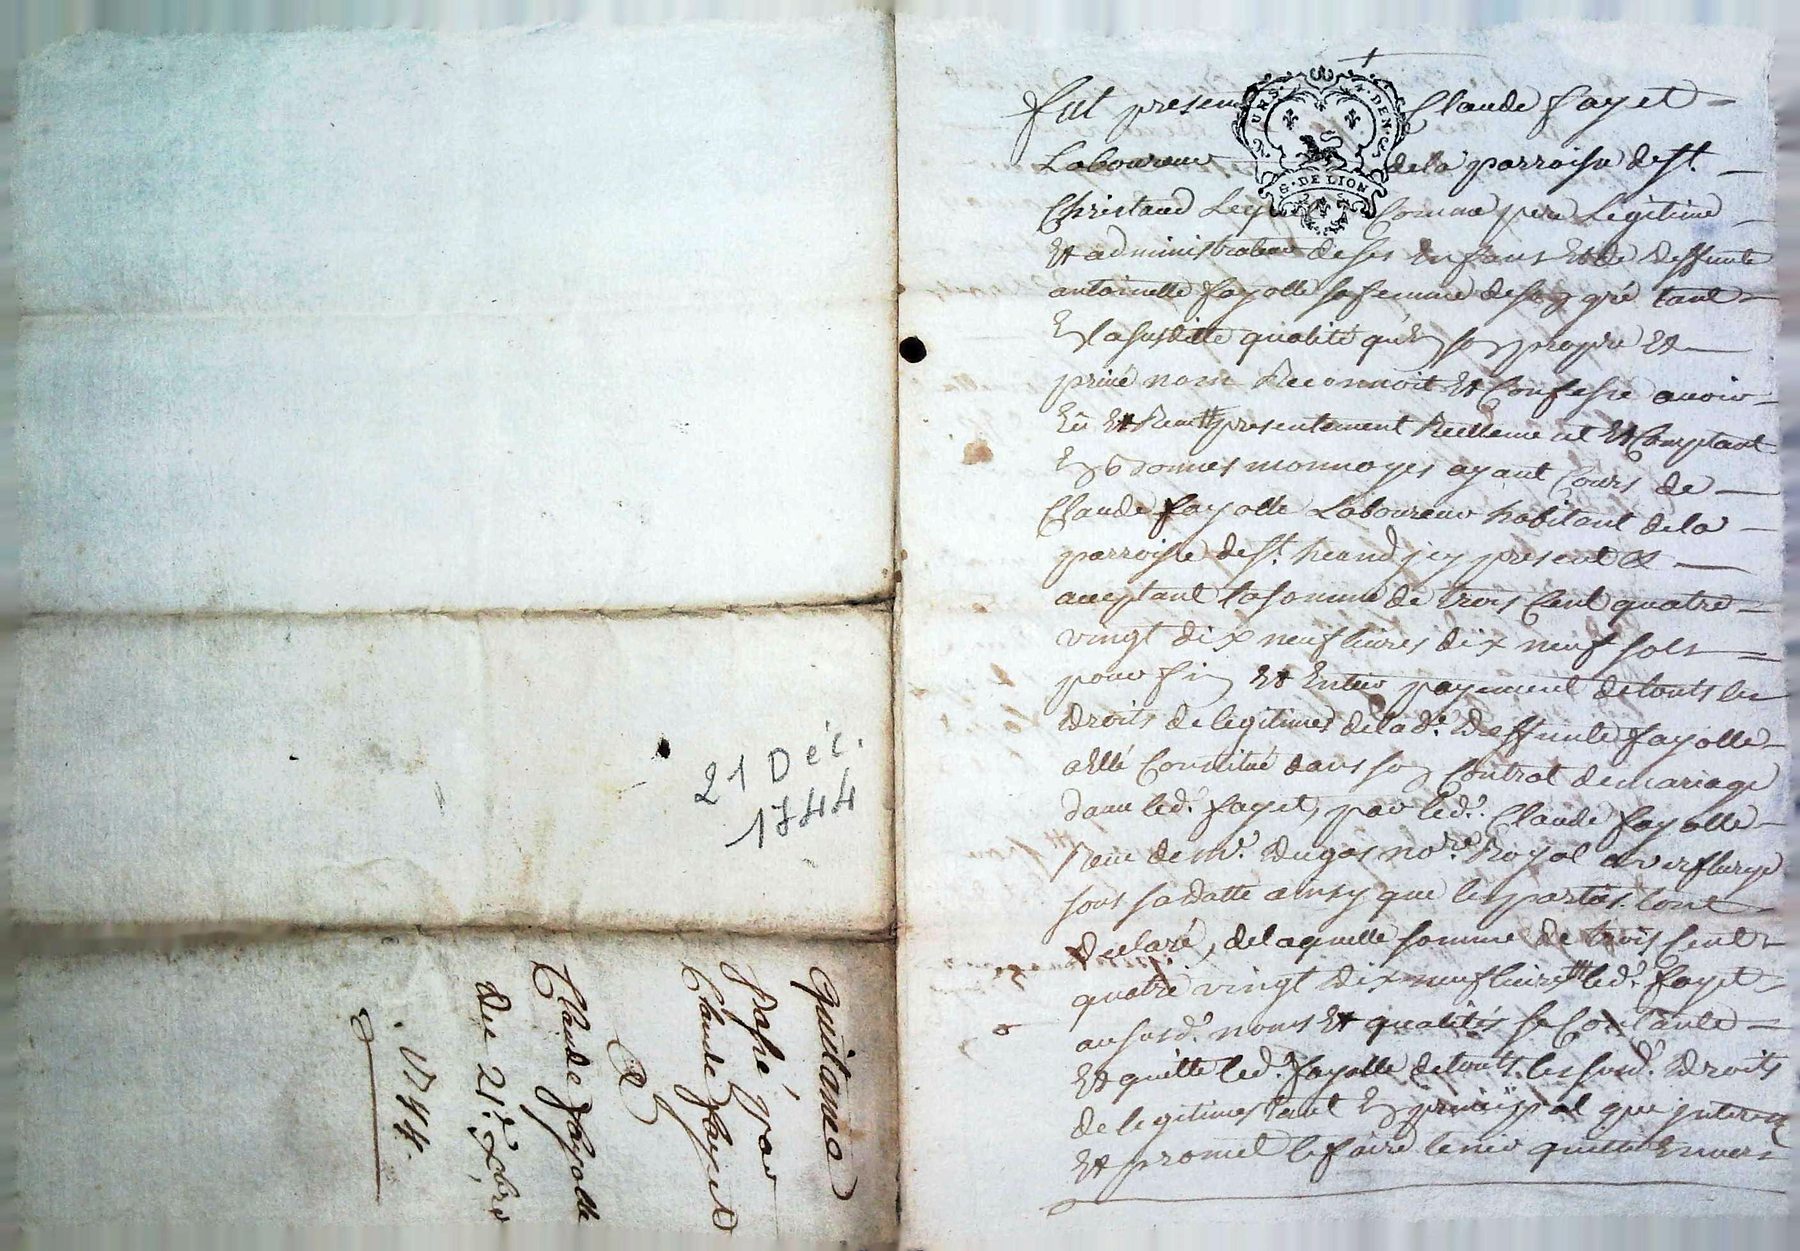 21 Déc.
1744
Quittance
passé par
Claude Fayet
A
Claude Fayolle
du 21e Xbre
1744.
Fut present Claude Fayet
Laboureur de la parroisse de St.
Christaud Comme pere Legitime
Et administrateur de ses Enfans Et de deffunte
antoinette fayolle sa femme de son gré tant
En la susditte qualité qu'En son propre Et
privé nom Reconnoit Et Confesse avoir
Eü Et presentement Reellement Et Comptant
En bonnes monnoyes ayant Cours de
Claude fayolle Laboureur habitant de la
parroisse de St. heand jcy present Et
acceptant la somme de trois Cent quatre
vingt dix neuf livres dix neuf sols
pour fin Et Entier payement de touts les
droits de legitimes de lad.e deffunte fayolle
a Elle Constitué dans son Contrat de mariage
avec led.t fayet, par led.t Claude fayolle
Receu de M.e Dugas no.re Royal a
sous sa datte ainsy que les parties l'ont
declaré, de laquelle somme de trois Cent
quatre vingt dix neuf livres led.t fayet
aususd.t noms Et qualités se Contante
Et quitte led.t fayolle de touts les susd.t droits
de legitimes tant En principal que jnterets
Et promet le faire tenir quitte Envers
N
S. DE LION